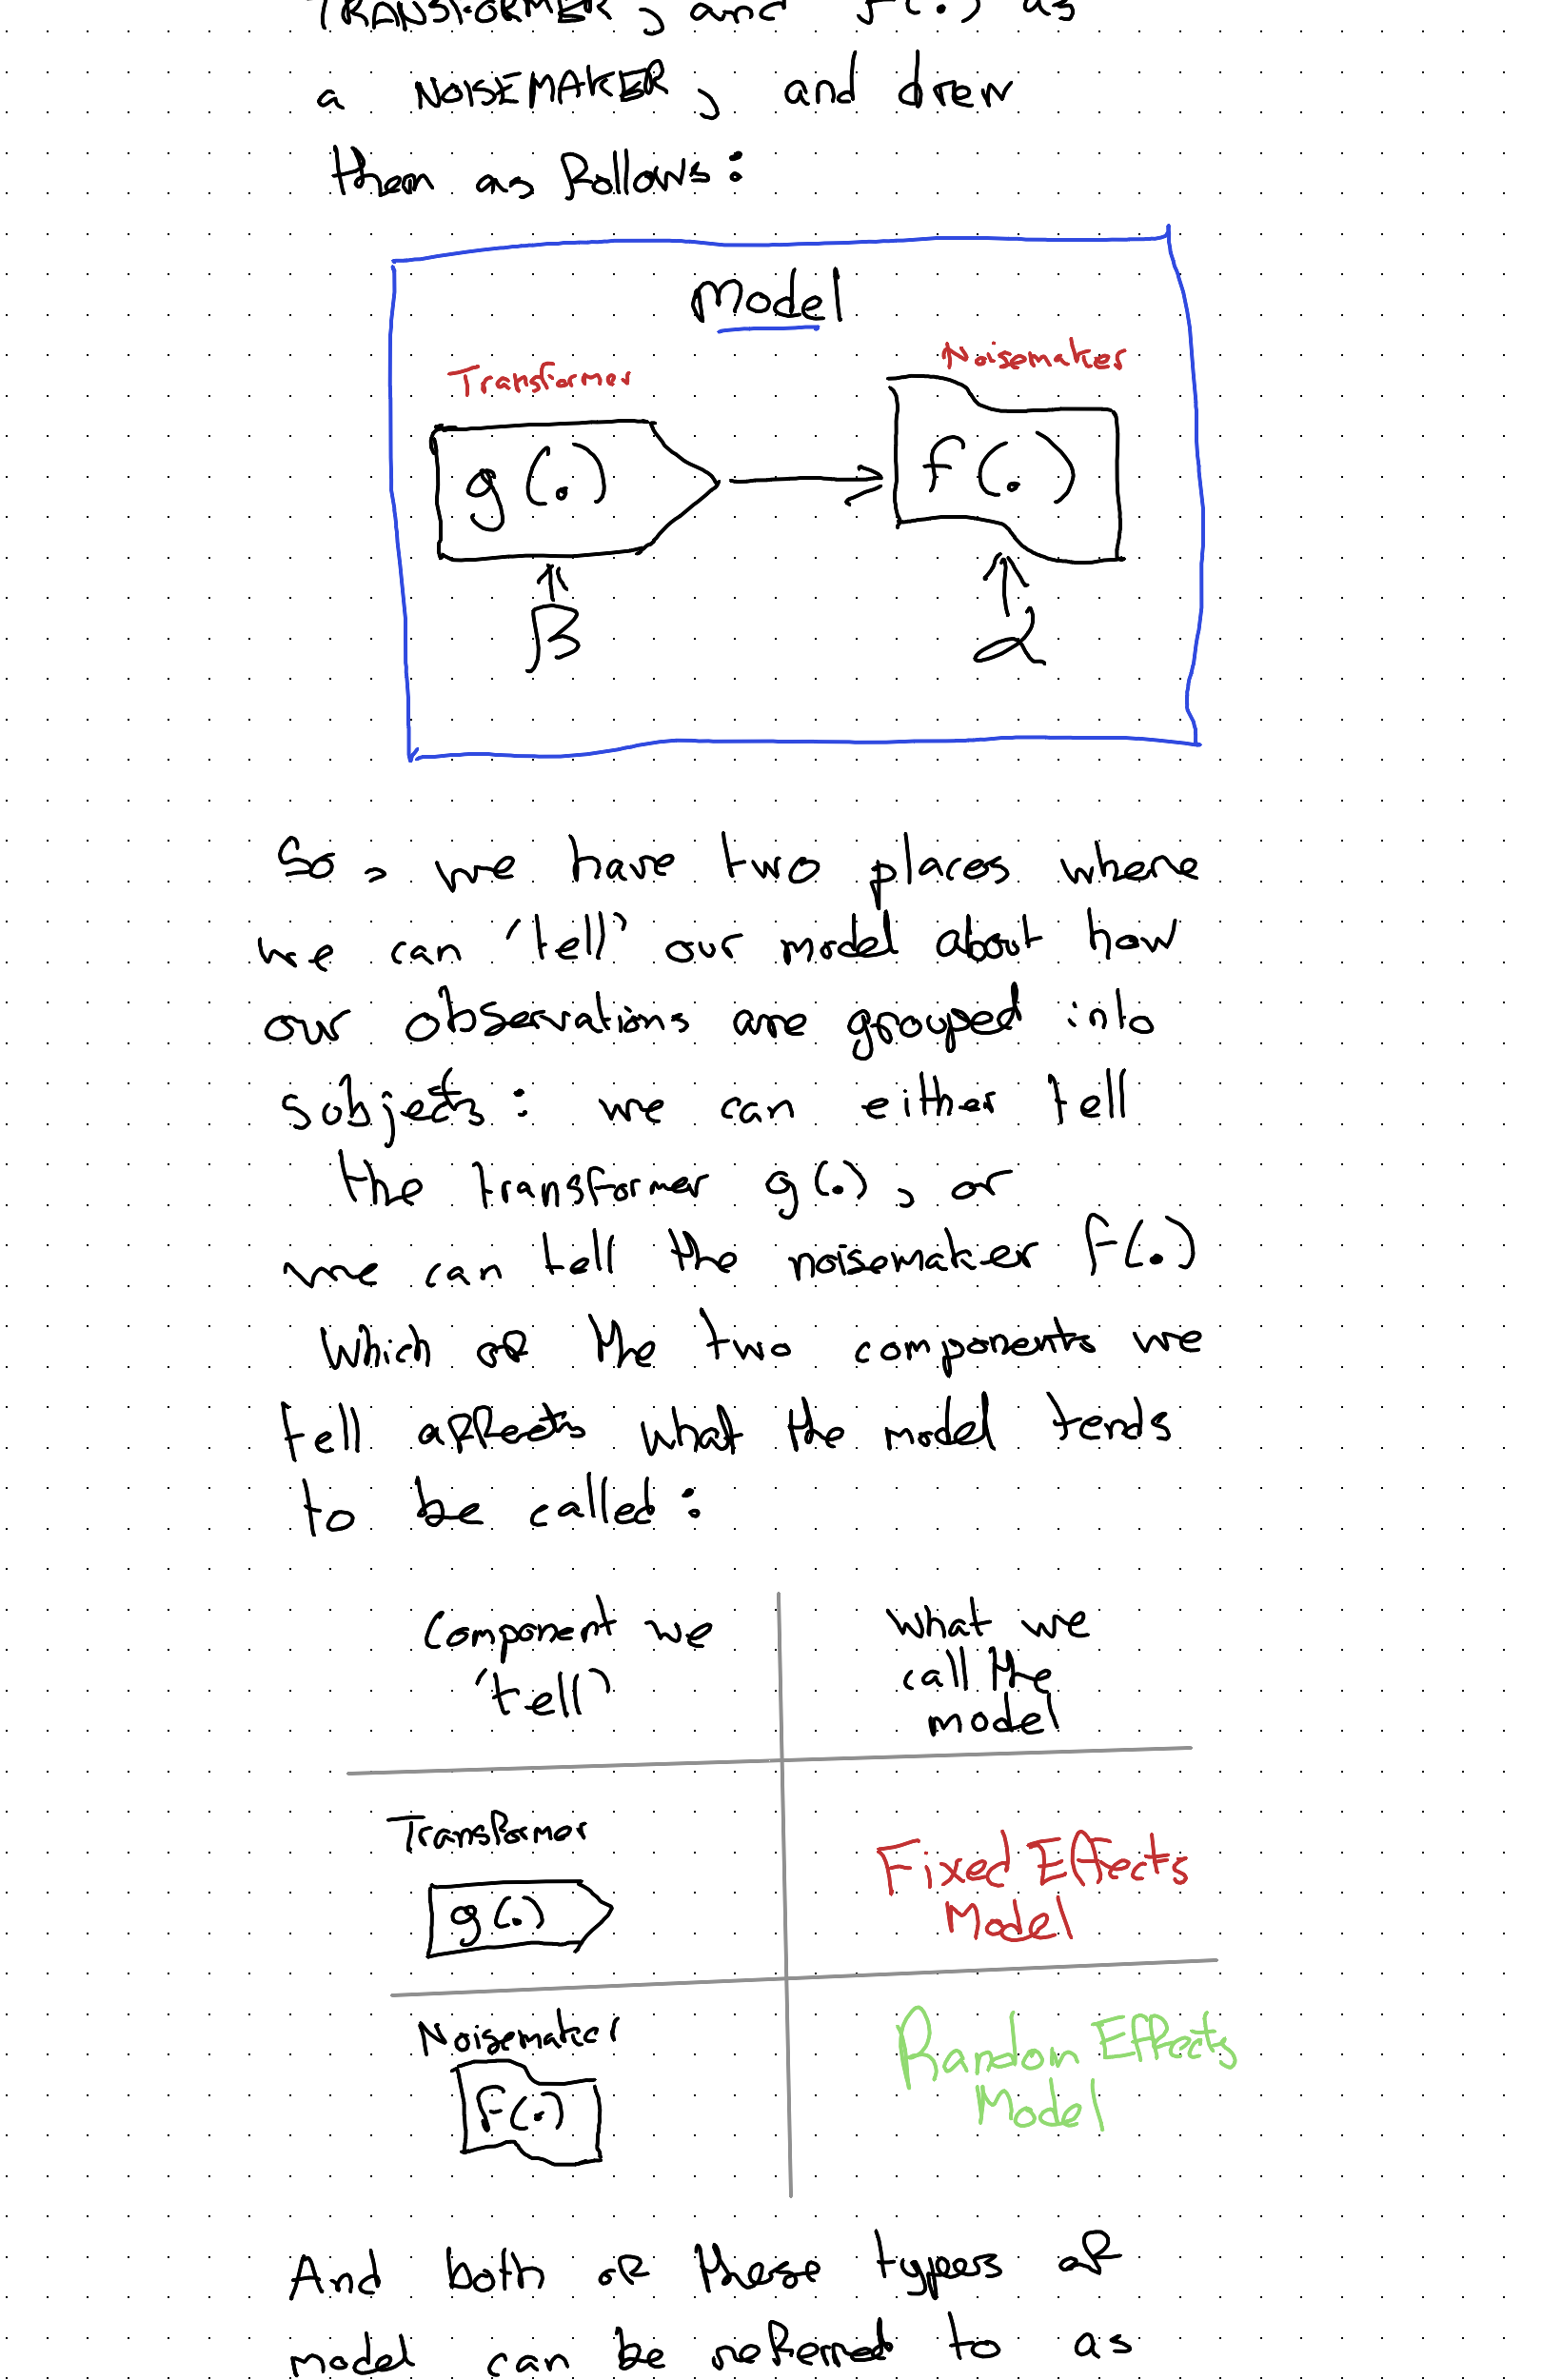 TRANSFORMER, and f(.) as
a NOISEMAKER, and drew
them as follows:
Model
Transformer
Noisemaker
g(.)
f(.)
β
α
So, we have two places where
we can 'tell' our model about how
our observations are grouped into
subjects: we can either tell
the transformer g(.), or
we can tell the noisemaker f(.)
Which of the two components we
tell affects what the model tends
to be called:
Component we
'tell'
What we
call the
model
Transformer
g(.)
Fixed Effects
Model
Noisemaker
f(.)
Random Effects
Model
And both of these types of
model can be referred to as